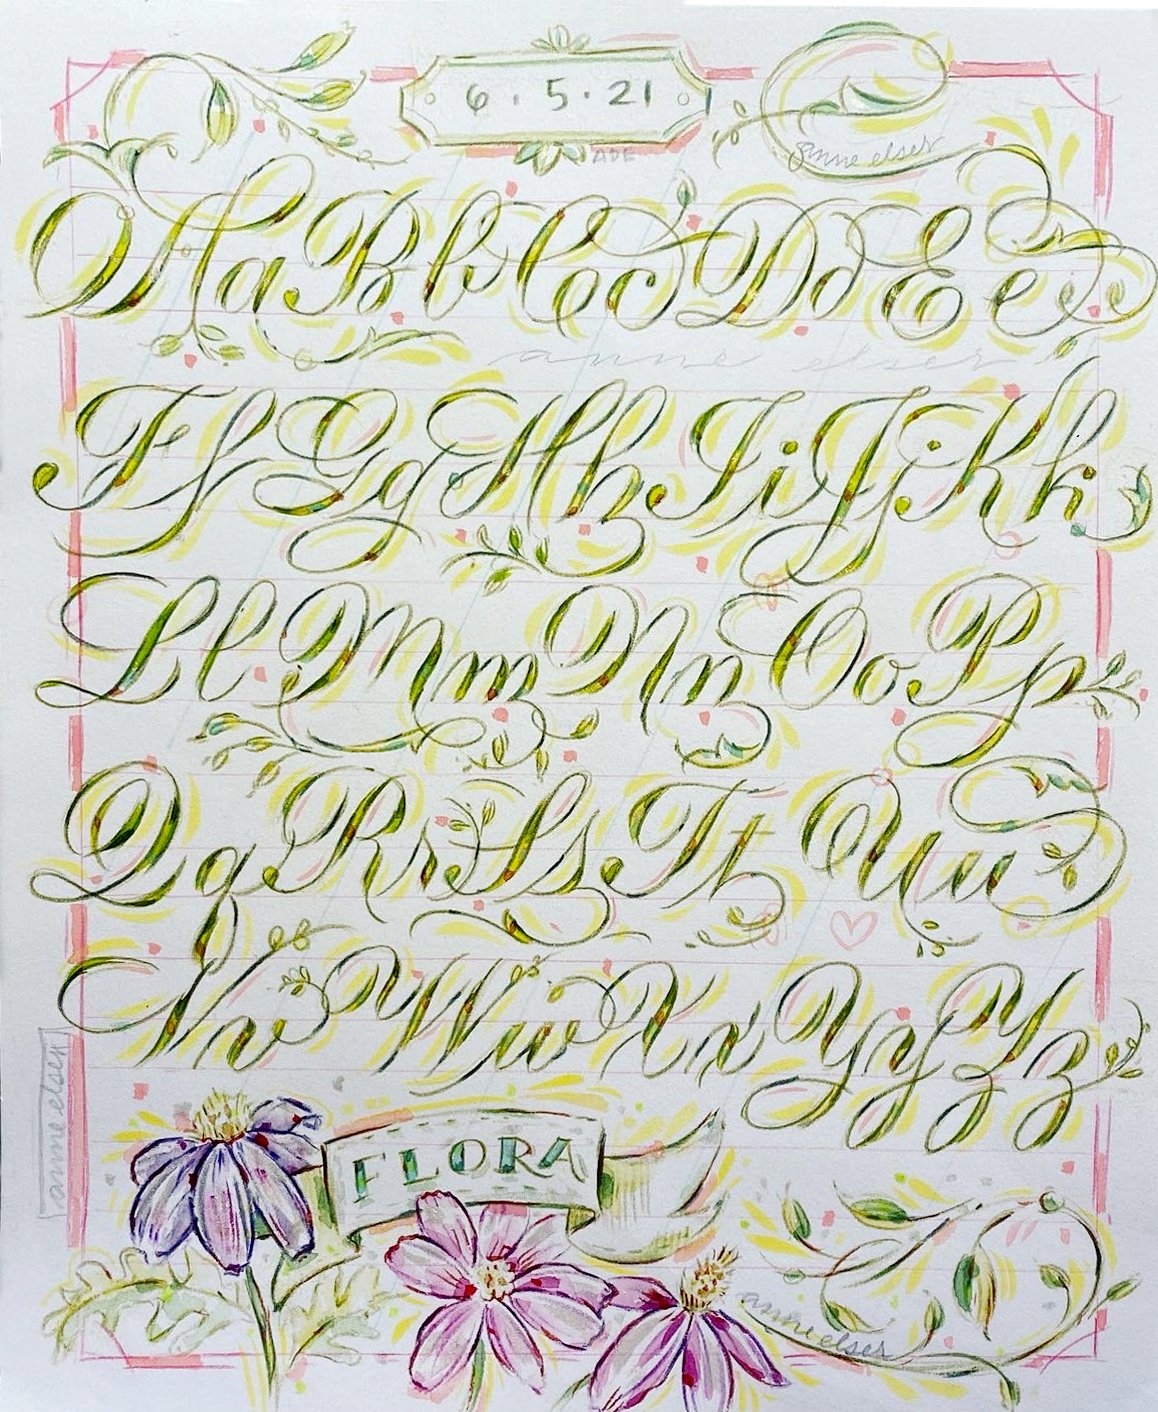 6 · 5 · 21
ADE
anne elser
Aa Bb Cc Dd Ee
anne elser
Ff Gg Hh Ii Jj Kk
Ll Mm Nn Oo Pp
Qq Rr Ss Tt Uu
Vv Ww Xx Yy Zz
anne elser
FLORA
anne elser